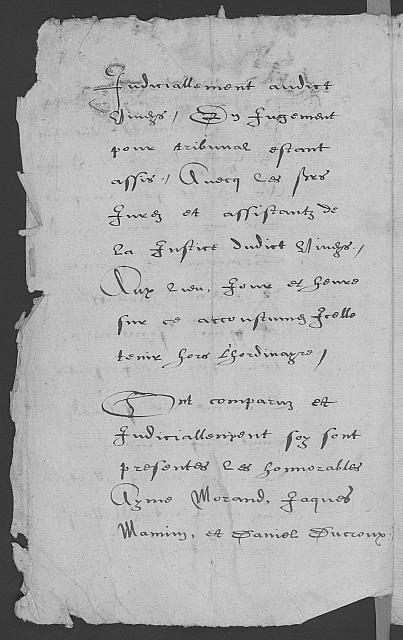 Judiciallement audict
En Jugement
pour tribunal estant
assis / Avecq les srs
Jurez et assistantz de
la Justice dudict
Aux lieu, Jour et heure
sur ce accoustumez Icelle
tenir hors l'hordinayre /
Ont comparuz et
Judiciallement soy sont
presentes les honnorables
Ayme Morand, Jaques
Mamin, et Daniel Ducroux